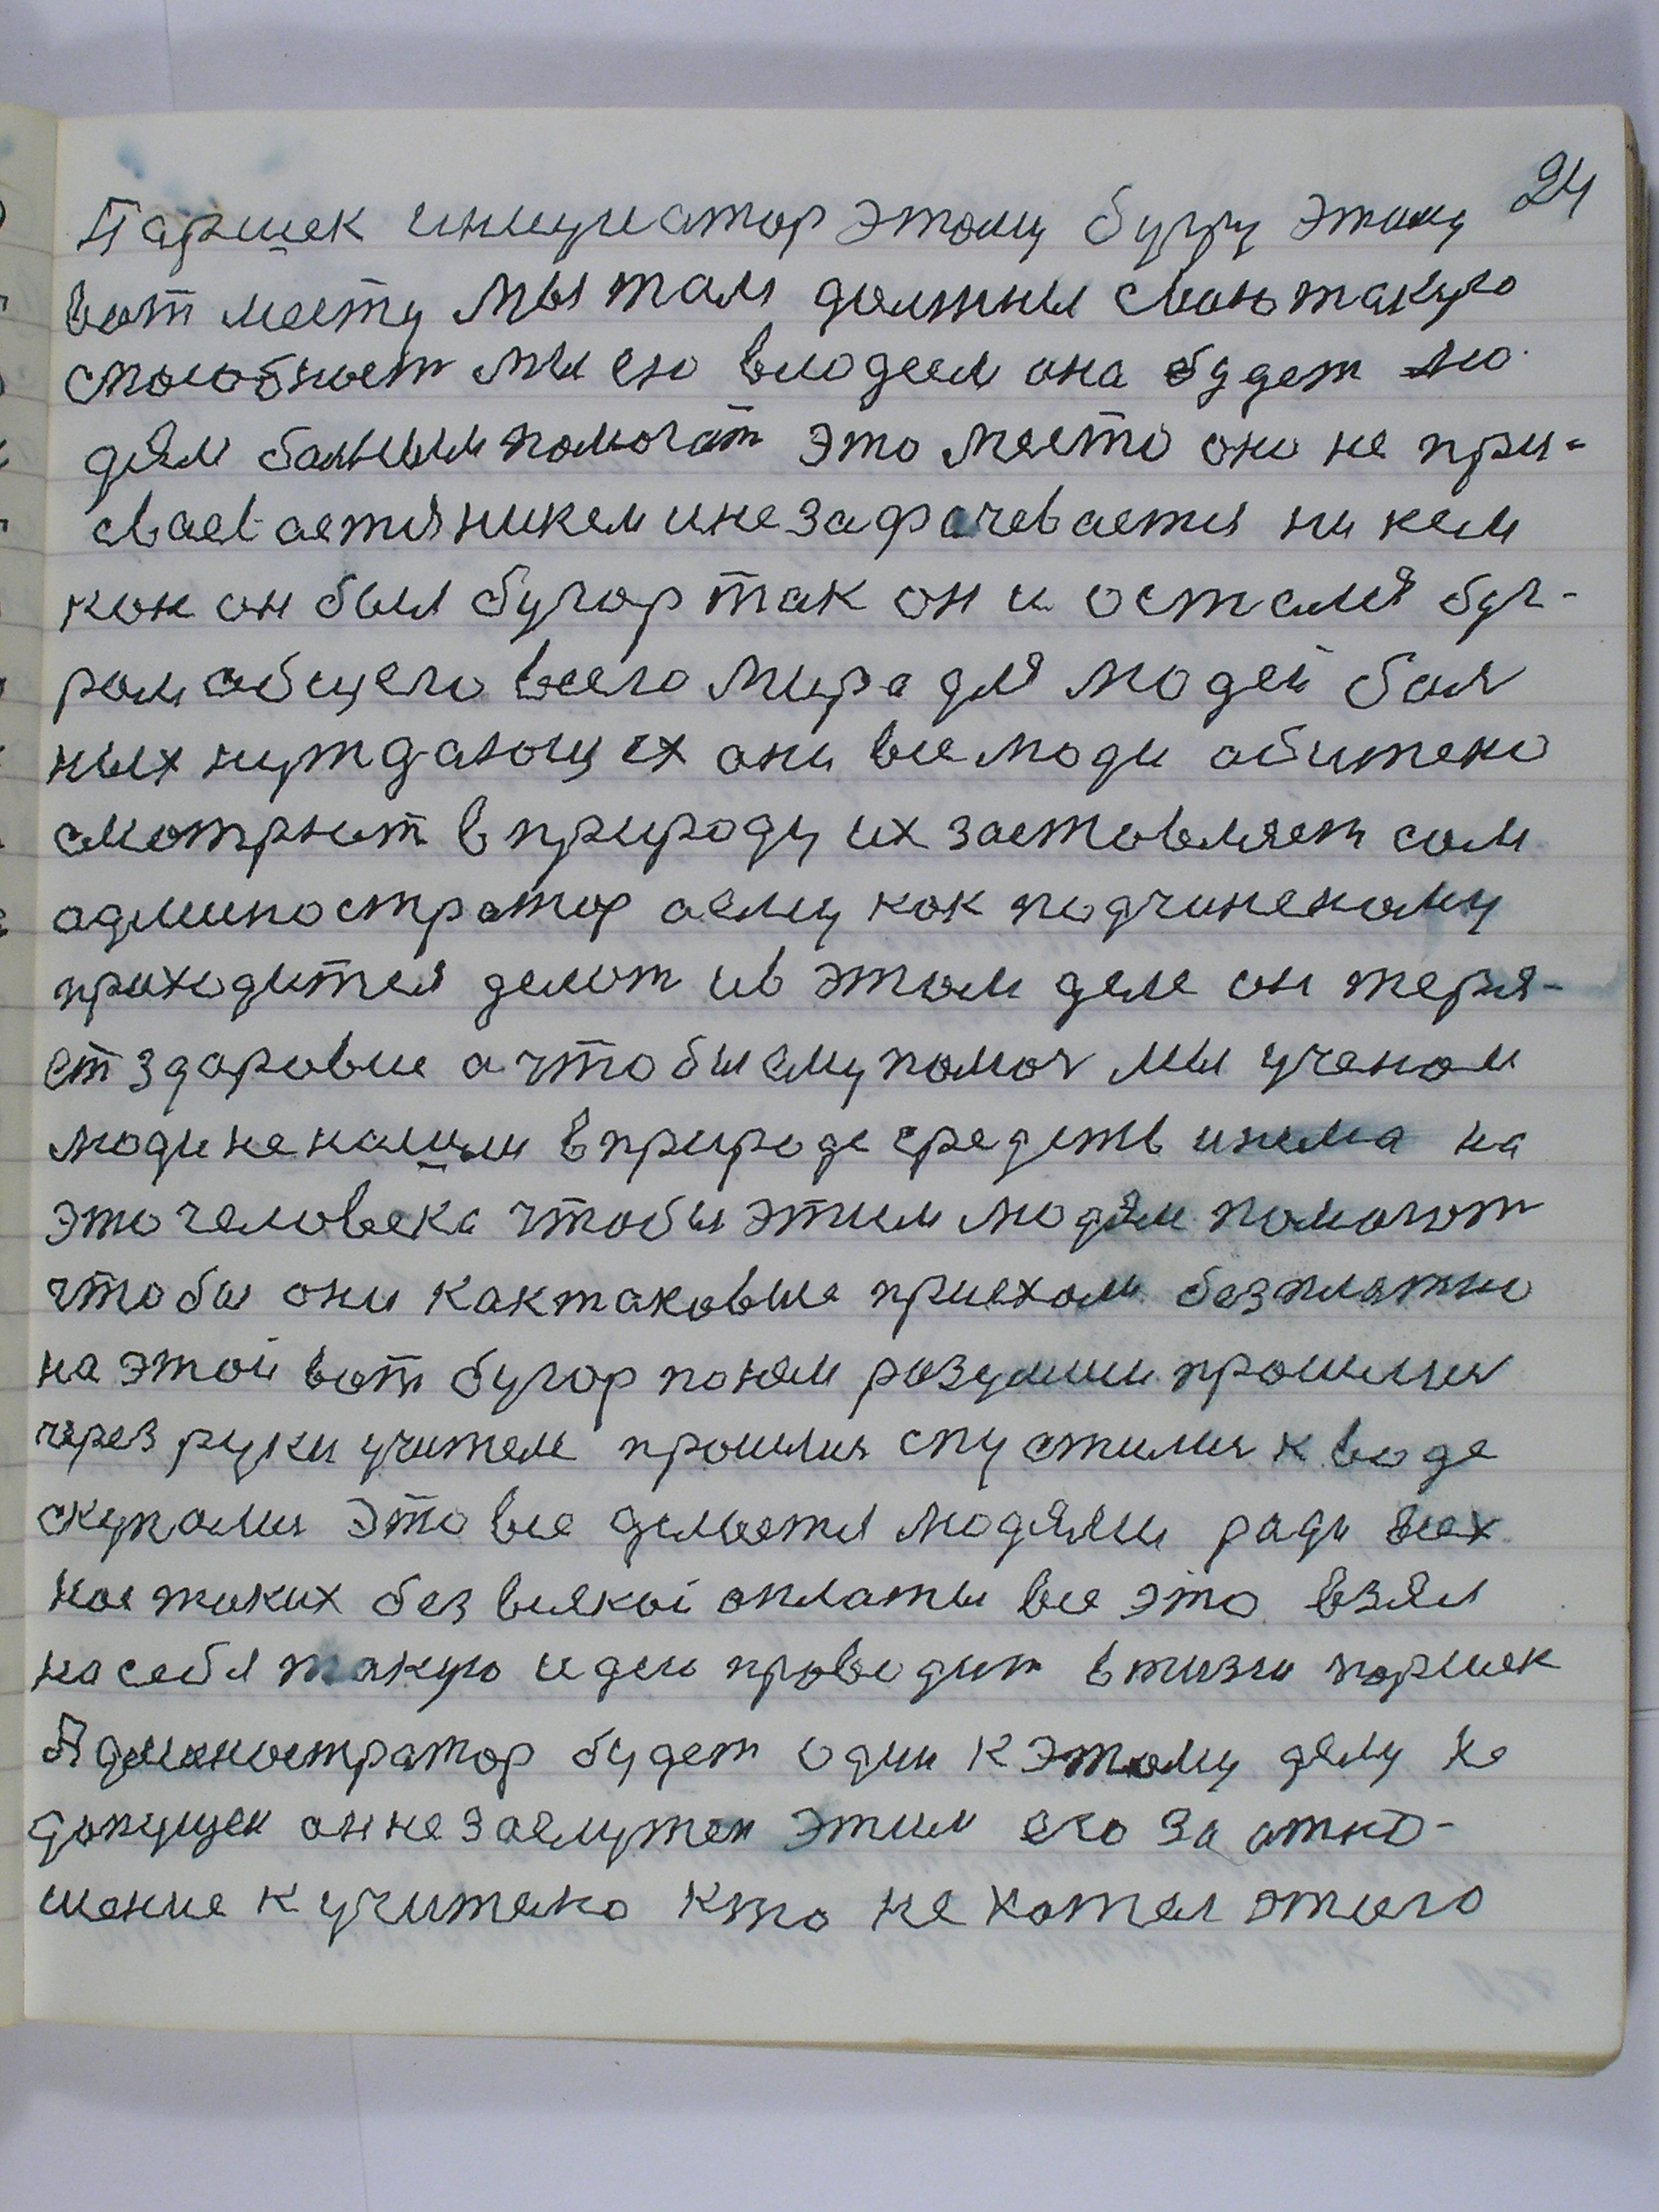 24
Паршек инициатор этому бугру этому
вот месту мы там должны свою такую
способност мы ею владеем она будет лю
дям бальным помогат это место оно не при-
сваевается никем и не зафачевается ни кем
как он был бугор так он и остался буг-
ром общего всего мира для людей бол
ных нуждающих они все люди обижено
смотрят в природу их заставляет сам
администратор аему как подчиненаму
приходится делат и в этом деле он теря-
ет здаровие а что бы ему помоч мы ученаи
люди не нашли в природе средств и нима на
это человека чтобы этим людям помогат
чтобы они как таковые приехали безплатно
на этой вот бугор поняли разулии прошлися
через руки учителе прошлися спустилися к воде
скупалися это все делается людями ради всех
нас таких без всякой оплаты все это взял
на себя такую идею проводит в жизни паршек
Администратор будет один к этому делу не
допущен он не заслужен этим его за отно-
шение к учителю кто не хотел этого